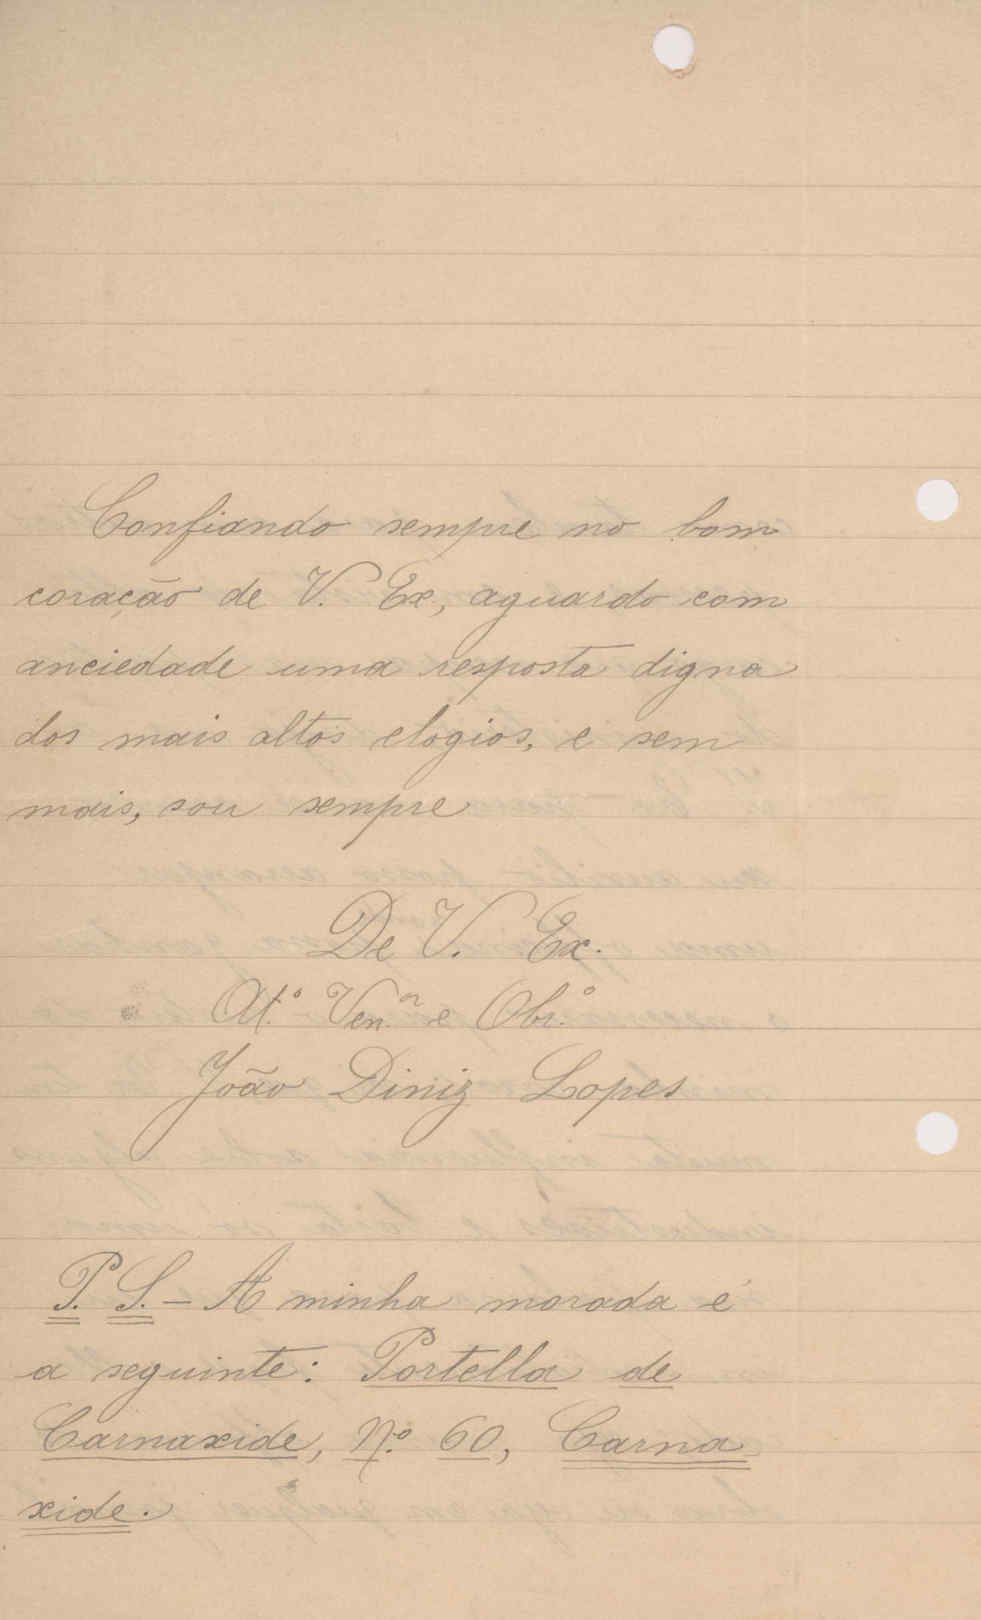 Confiando sempre no bom
coração de V. Ex., aguardo com
anciedade uma resposta digna
dos mais altos elogios, e sem
mais, sou sempre
De V. Ex.
At.º Ven.ºʳ e Obr.º
João Diniz Lopes
P. S. - A minha morada é
a seguinte: Portella de
Carnaxide, N.º 60, Carna
xide.